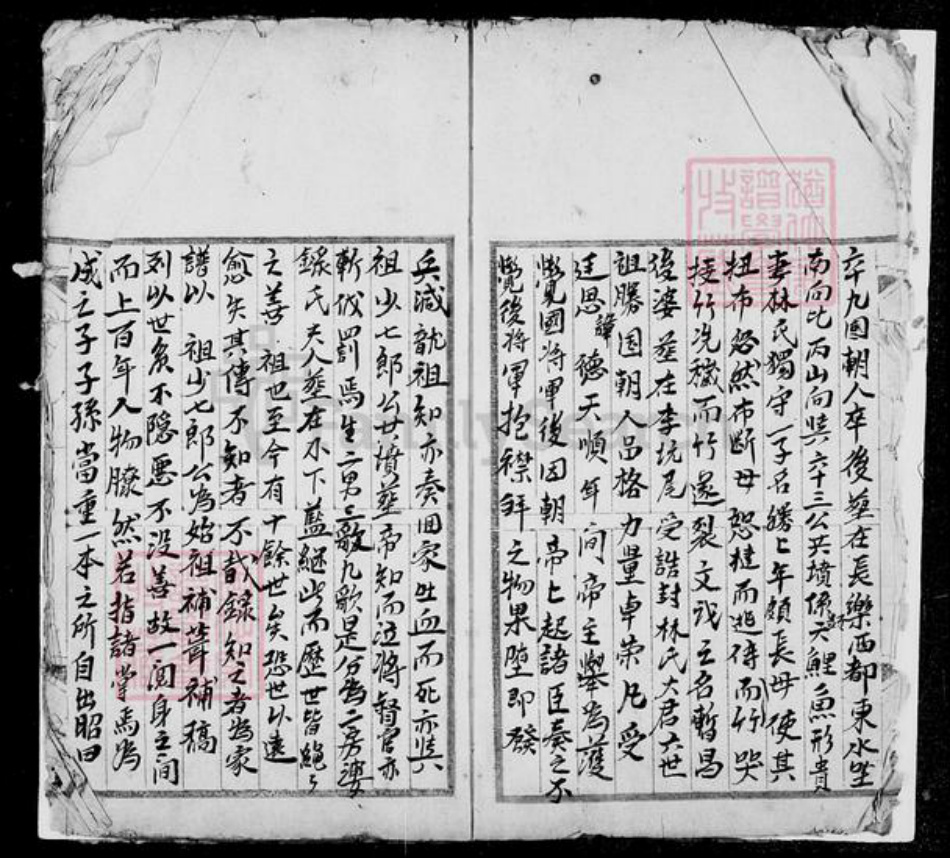 卒九国朝人卒後塟在長樂西都東水坐
南向北丙山向與六十三公共墳係大鯉魚形貴
妻林氏獨守一子名勝上年頗長母使其
扭布忽然布断母怒撻而逃侍而行哭
後婆塟在李坑尾受誥封林氏大君六世
祖勝国朝人品格力量卓荣凡受
廷恩諱德天順年間帝主舉為護
駕國将軍後因朝帝上起諸臣奏之不
覺後将軍抱襟拜之物果墮即發
兵滅龍祖知亦奏回家吐血而死亦與
祖少七郎公共墳塟帝知而泣将督官亦
斬伐罰焉生二男三歌九歌是分為二房婆
錄氏夫人塟在不下藍継此而歷世皆綿々
之善祖也至今有十餘世矣恐世以遠
愈失其傳不知者不載錄知之者為家
譜以祖少七郎公為始祖補葺補稿
列以世系不隐惡不没善故一閲身主间
而上百年人物朦然若指諸掌焉為
成之子子孫當重一本之所自出昭曰